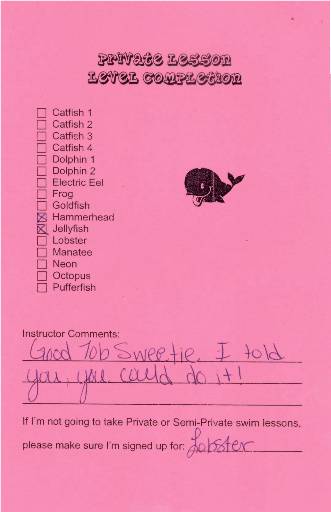 Private Lesson
Level Completion
Catfish 1
Catfish 2
Catfish 3
Catfish 4
Dolphin 1
Dolphin 2
Electric Eel
Frog
Goldfish
Hammerhead
Jellyfish
Lobster
Manatee
Neon
Octopus
Pufferfish
Instructor Comments:
Good Job Sweetie. I told
you, you could do it!
If I'm not going to take Private or Semi-Private swim lessons,
please make sure I'm signed up for: Lobster